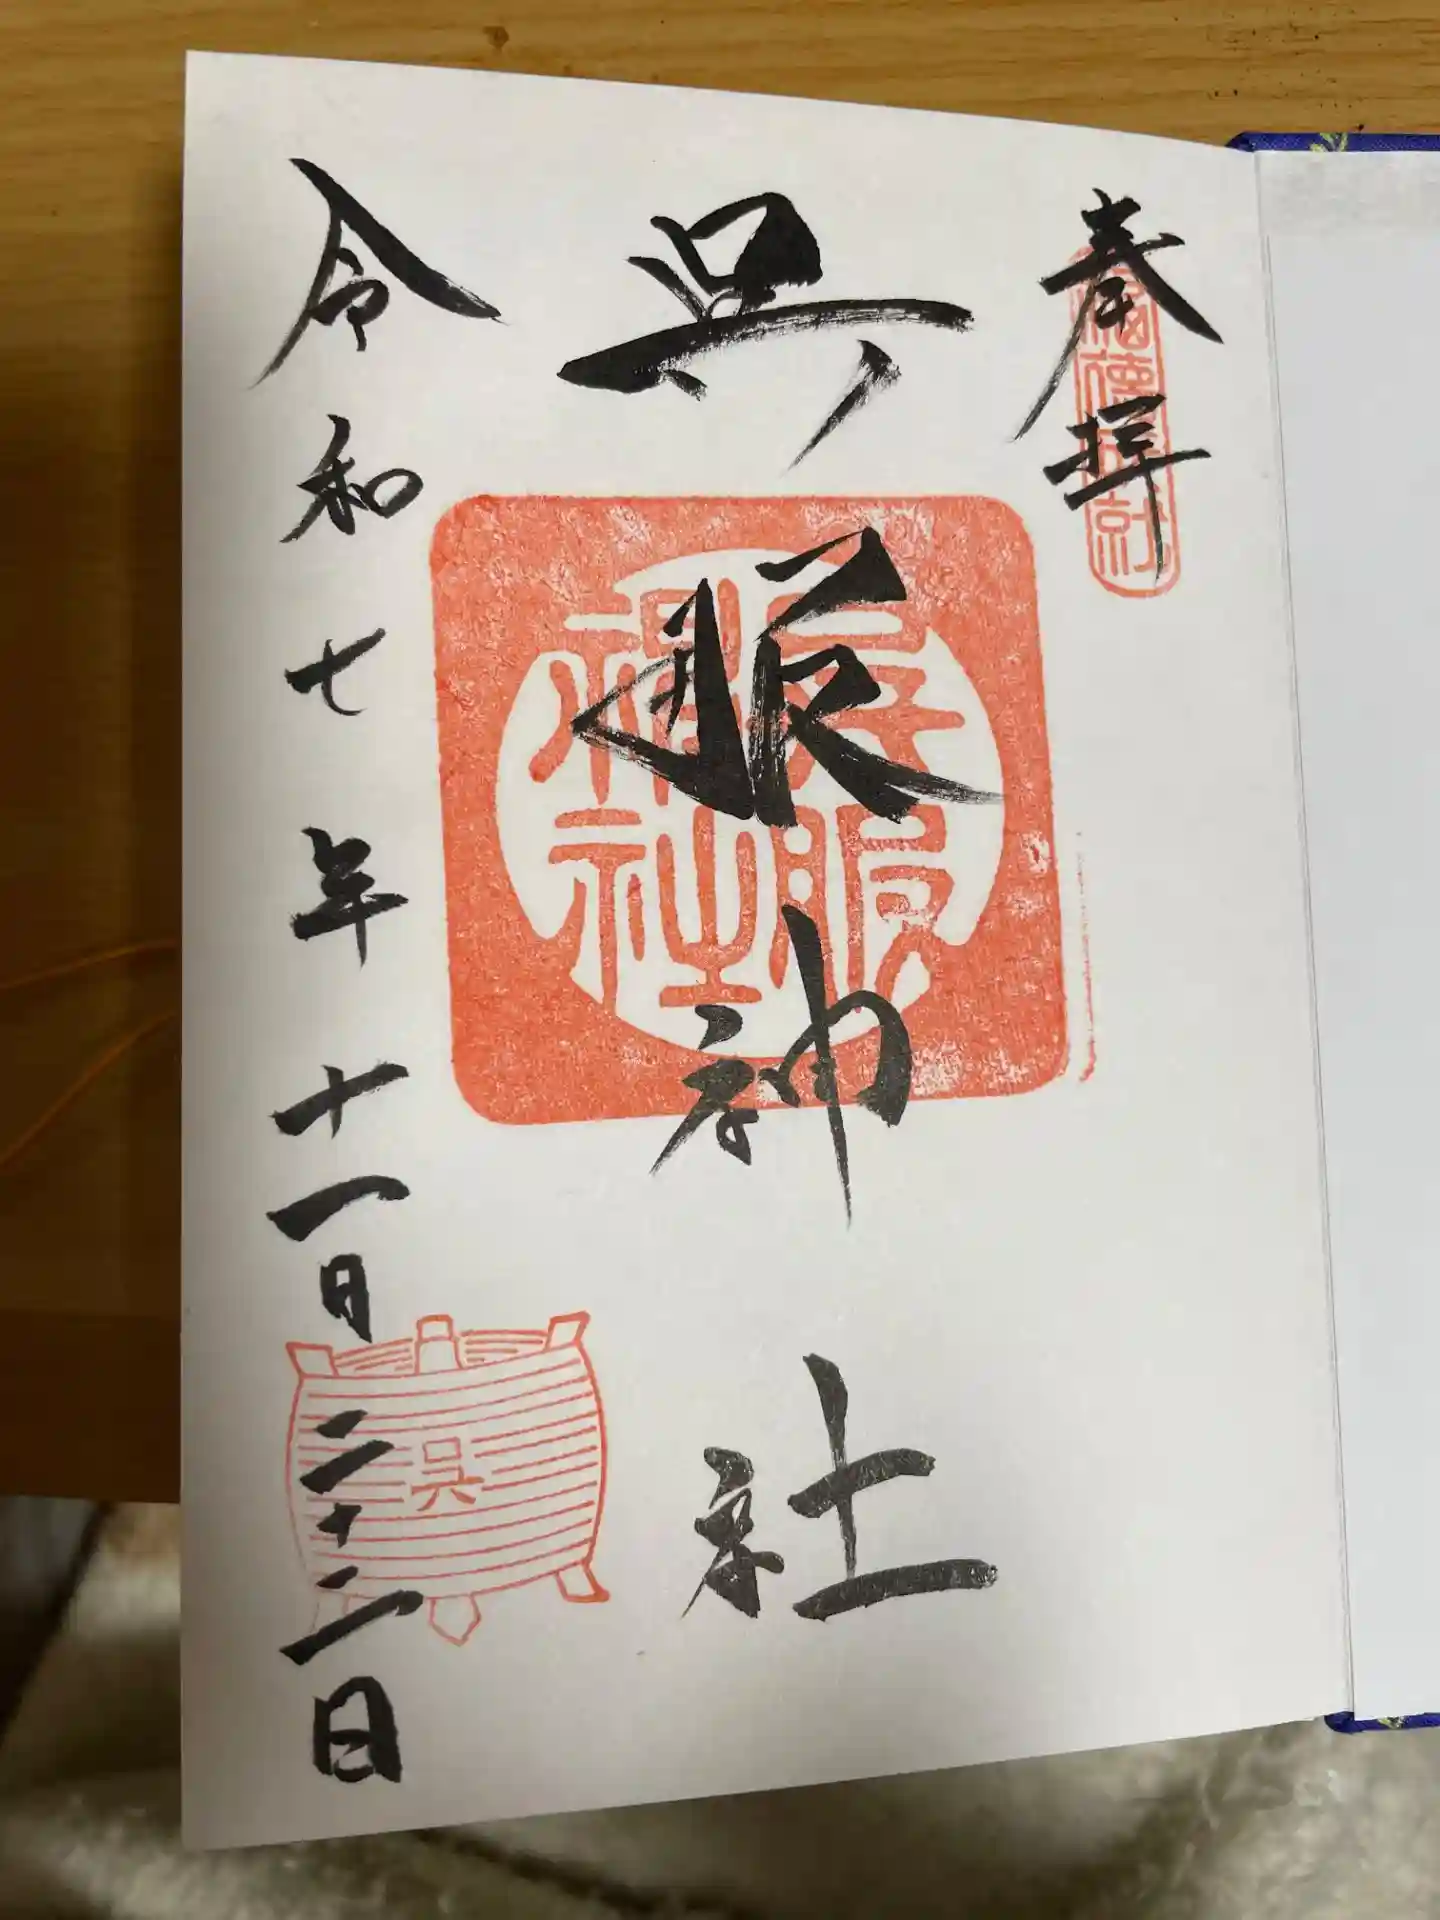 奉拝
呉服神社
呉服神社
令和七年十一月二十二日
呉